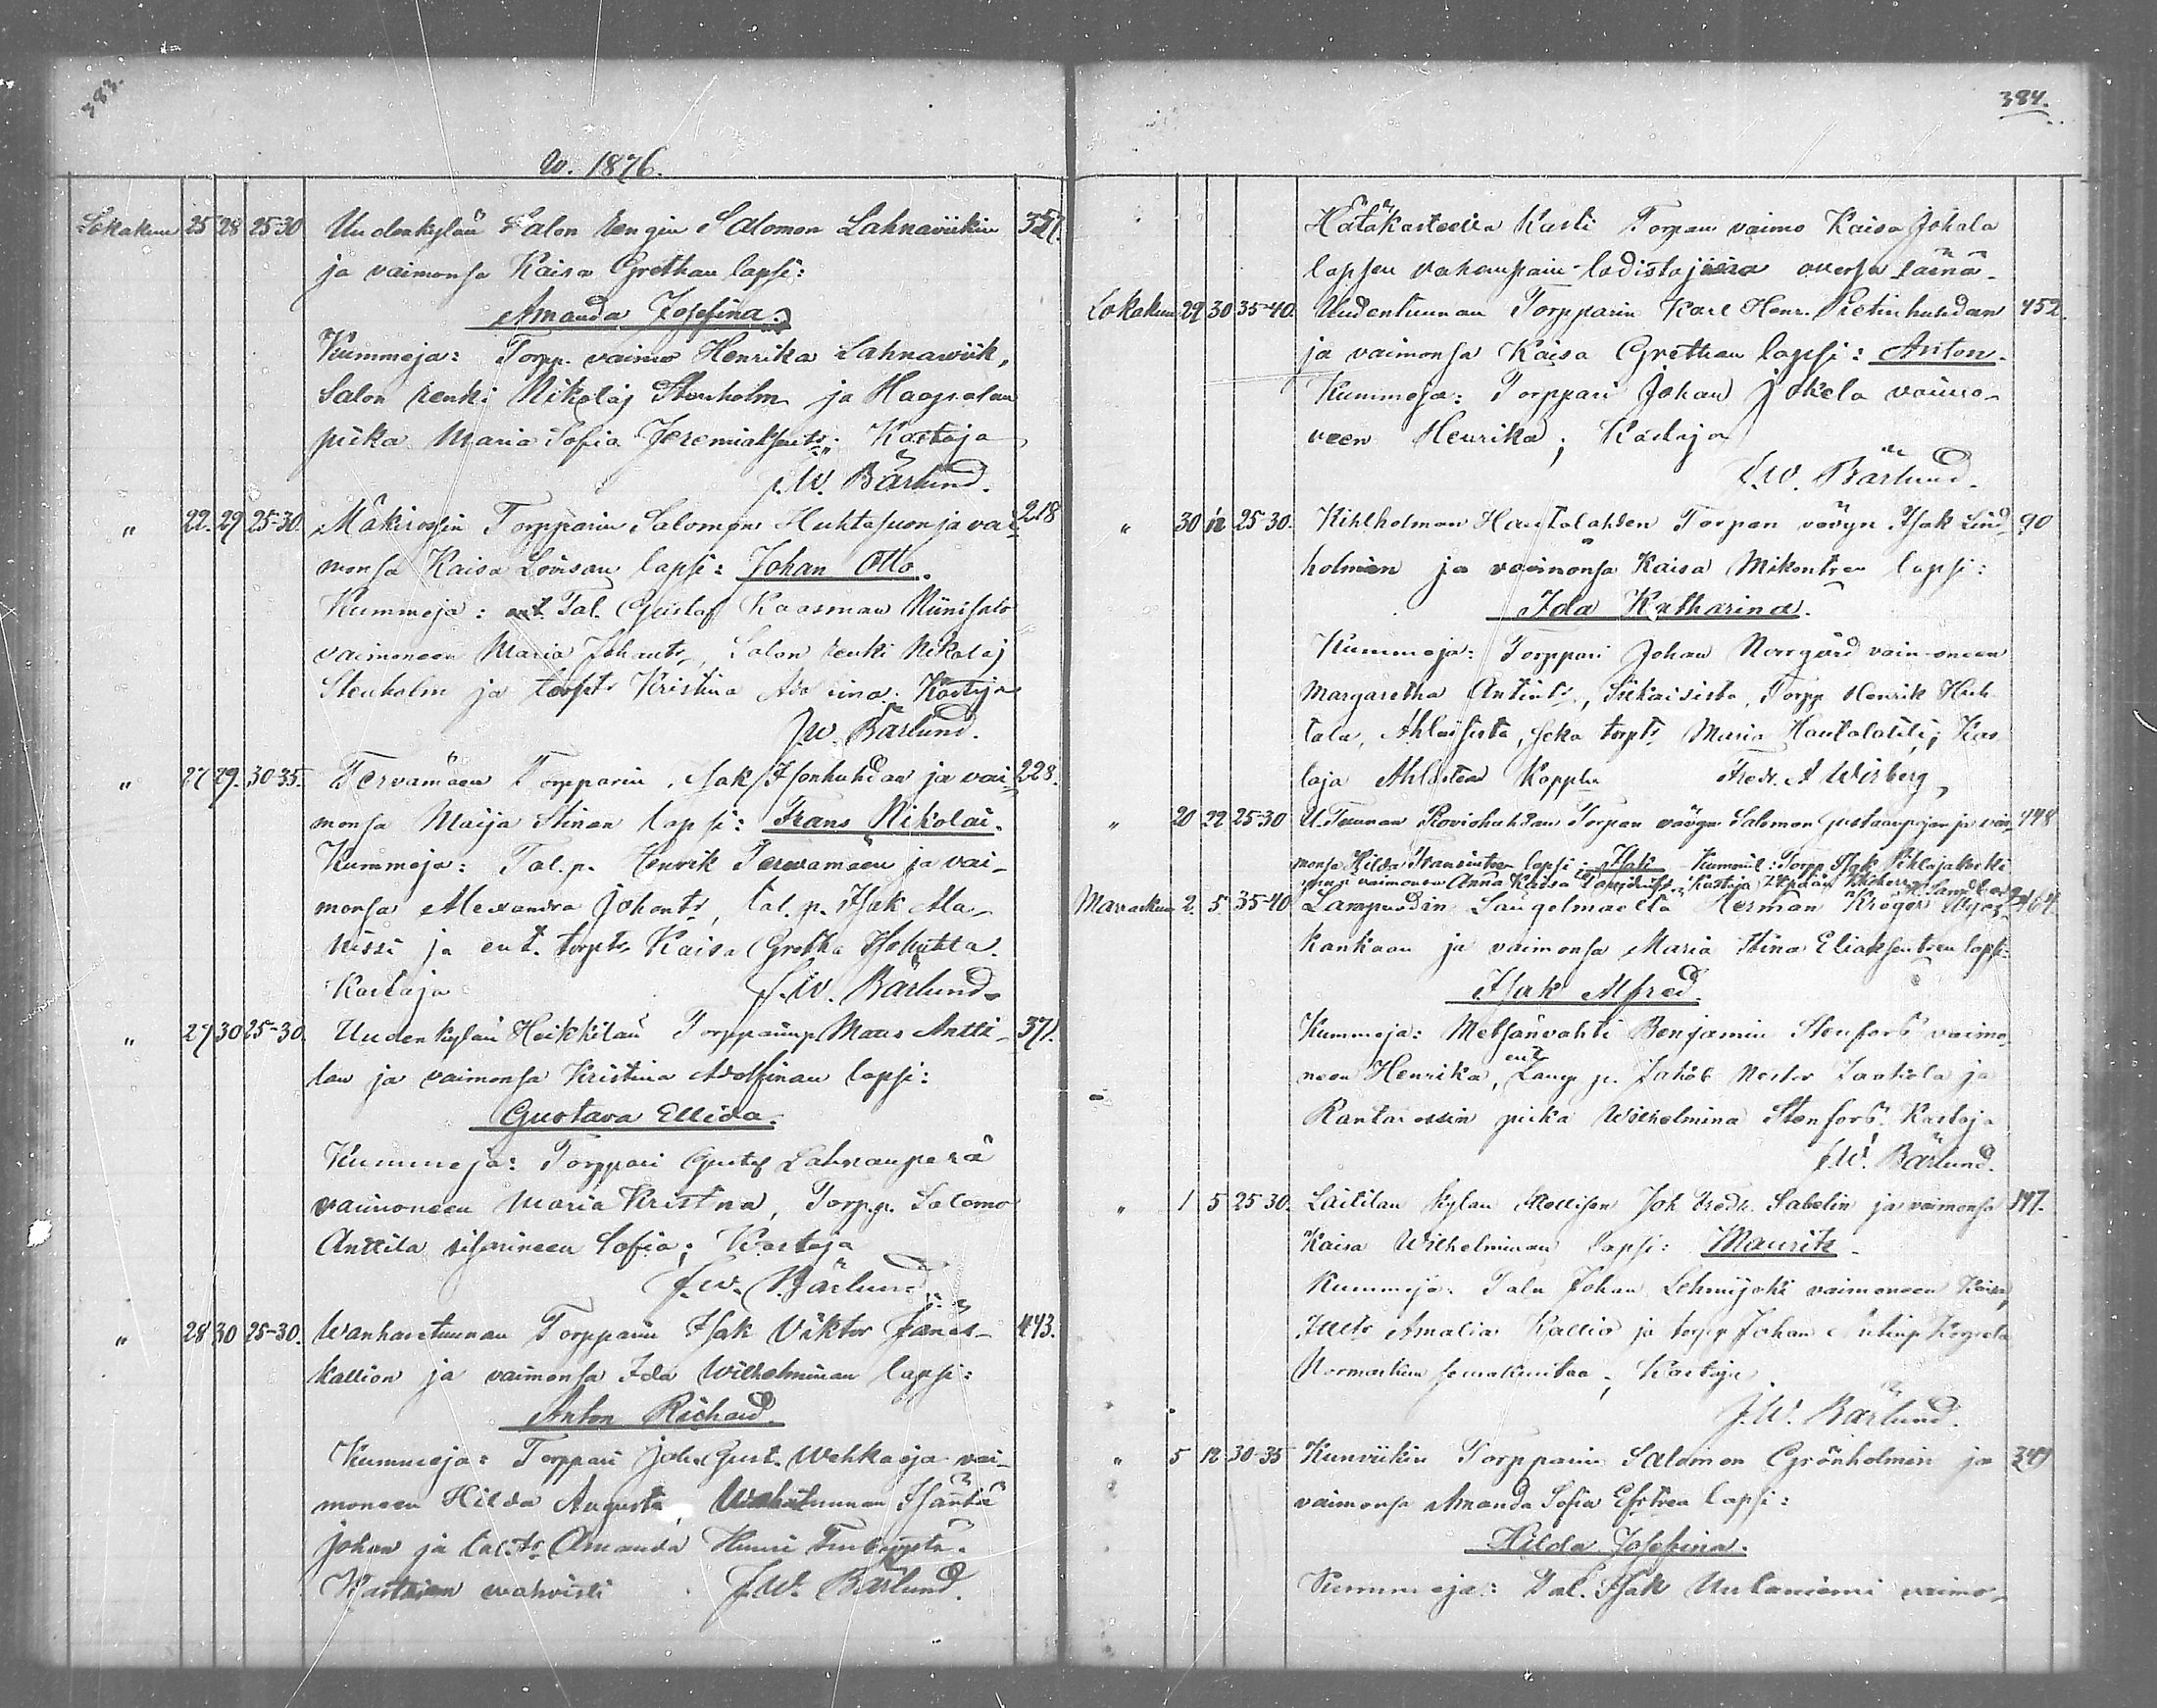 383.
w. 1876.
Lokakuu 25 28 25-30 Uudenkylän Salon rengin Salomon Lahnaviikin 357.
ja vaimonsa Kaisa Grethan lapsi:
Amanda Josefina.
Kummeja: Torpp. vaimo Henrika Lahnawiik,
Salon renki Nikolaj Stenholm ja Haapsalan
piika Maria Sofia Jeremiaksentr. Kastaja
J.W. Bärlund.
" 22. 29 25-30. Mäkirossin Torpparin Salomon Huhtasuon ja vai- 218
monsa Kaisa Lovisan lapsi: Johan Otto.
Kummeja: ent. Tal. Gustaf Kaasman Niinisalo
vaimoneen Maria Johantr, Salon renki Nikolaj
Stenholm ja torptr Kristina Adolfina. Kastaja
J.W. Bärlund.
" 27 29. 30-35. Tervamäen Torpparin Isak Isonhuhdan ja vai- 228.
monsa Maija Stinan lapsi: Frans Nikolai.
Kummeja: Tal.p. Henrik Terwamäen ja vai-
monsa Alexandra Johantr, tal. p. Isak Ala-
nissi ja ent. torptr Kaisa Gretha
Kastaja J.W. Bärlund.
" 27 30 25-30. Uudenkylän Heikkilän Torpparinp Maas Antti- 371.
lan ja vaimonsa Kristina Adolfinan lapsi:
Gustava Ellida.
Kummeja: Torppari Gustaf Lahnanperä
vaimoneen Maria Kristina, Torp.p. Salomo
Anttila sisarineen Sofia; Kastaja
J.W. Bärlund.
" 28 30 25-30. Wanhantuunan Torpparin Isak Viktor Janes- 443.
kallion ja vaimonsa Ida Wilhelminan lapsi:
Anton Richard.
Kummeja: Torppari Joh. Gust. Wehkaoja vai-
moneen Hilda Augusta, Isäntä
Johan ja tal.tr Amanda
Kasteen wahvisti J.W. Bärlund.
384.
Hätäkasteella Kasti Torpan vaimo Kaisa Jokela
lapsen vahempain todistajaina
Lokakuu 29 30 35-40. Uudentuunan Torpparin Karl Henr. Pietinhuhdan 452.
ja vaimonsa Kaisa Grethan lapsi: Anton.
Kummeja: Torppari Johan Jokela vaimo-
neen Henrika; Kastaja
J.W. Bärlund.
" 30 12 25-30. Kihlholman Hautalahden Torpan vävyn Isak Lind- 90
holmin ja vaimonsa Kaisa Mikontren lapsi:
Ida Katharina.
Kummeja: Torppari Johan Norrgård vaimoneen
Margaretha Antintr, Siikaisista, Torpp Henrik Huh-
tala, Ahlaisista, seka torptr Maria Hautalahti; Kas-
taja Ahlaisten Kappln Fredr. A Wisberg,
" 20 22 25-30 U.Tuunan Roviohuhdan Torpan vävyn Salomon Gustaanpojan ja vai- 448
monsa Hilda Fransintren lapsi: Isak Kummit: Torpp. Isak Pihlajakoski
vaimoneen Anna Kaisa Kastaja
Marraskuu 2. 5 35-40 Lampuodin Herman Kröger 464
kankaan ja vaimonsa Maria Stina Eliaksentren lapsi:
Isak Alfred.
Kummeja: Metsänvahti Benjamin Stenfors vaimo-
neen Henrika, ent Lamp. p. Jakob Nestor Jaakola ja
Rantarossin piika Wilhelmina Stenfors. Kastaja
J.W. Bärlund.
" 1 5 25-30. Laitilan kylan Itsellisen Joh. Fredr. Sabelin ja vaimonsa 197.
Kaisa Wilhelminan lapsi: Maurits.
Kummeja. Taln Johan Lehmijoki vaimoneen Kaisa,
Amalia Kallio ja torpp Johan
Normarkun seurakunnasta; Kastaja
J.W. Bärlund.
" 5 12 30-35 Kunviikin Torpparin Salomon Grönholmin ja 349
vaimonsa Amanda Sofia Efstren lapsi:
Hilda Josefina.
Kummeja: Tal. Isak Uulaniemi vaimo-